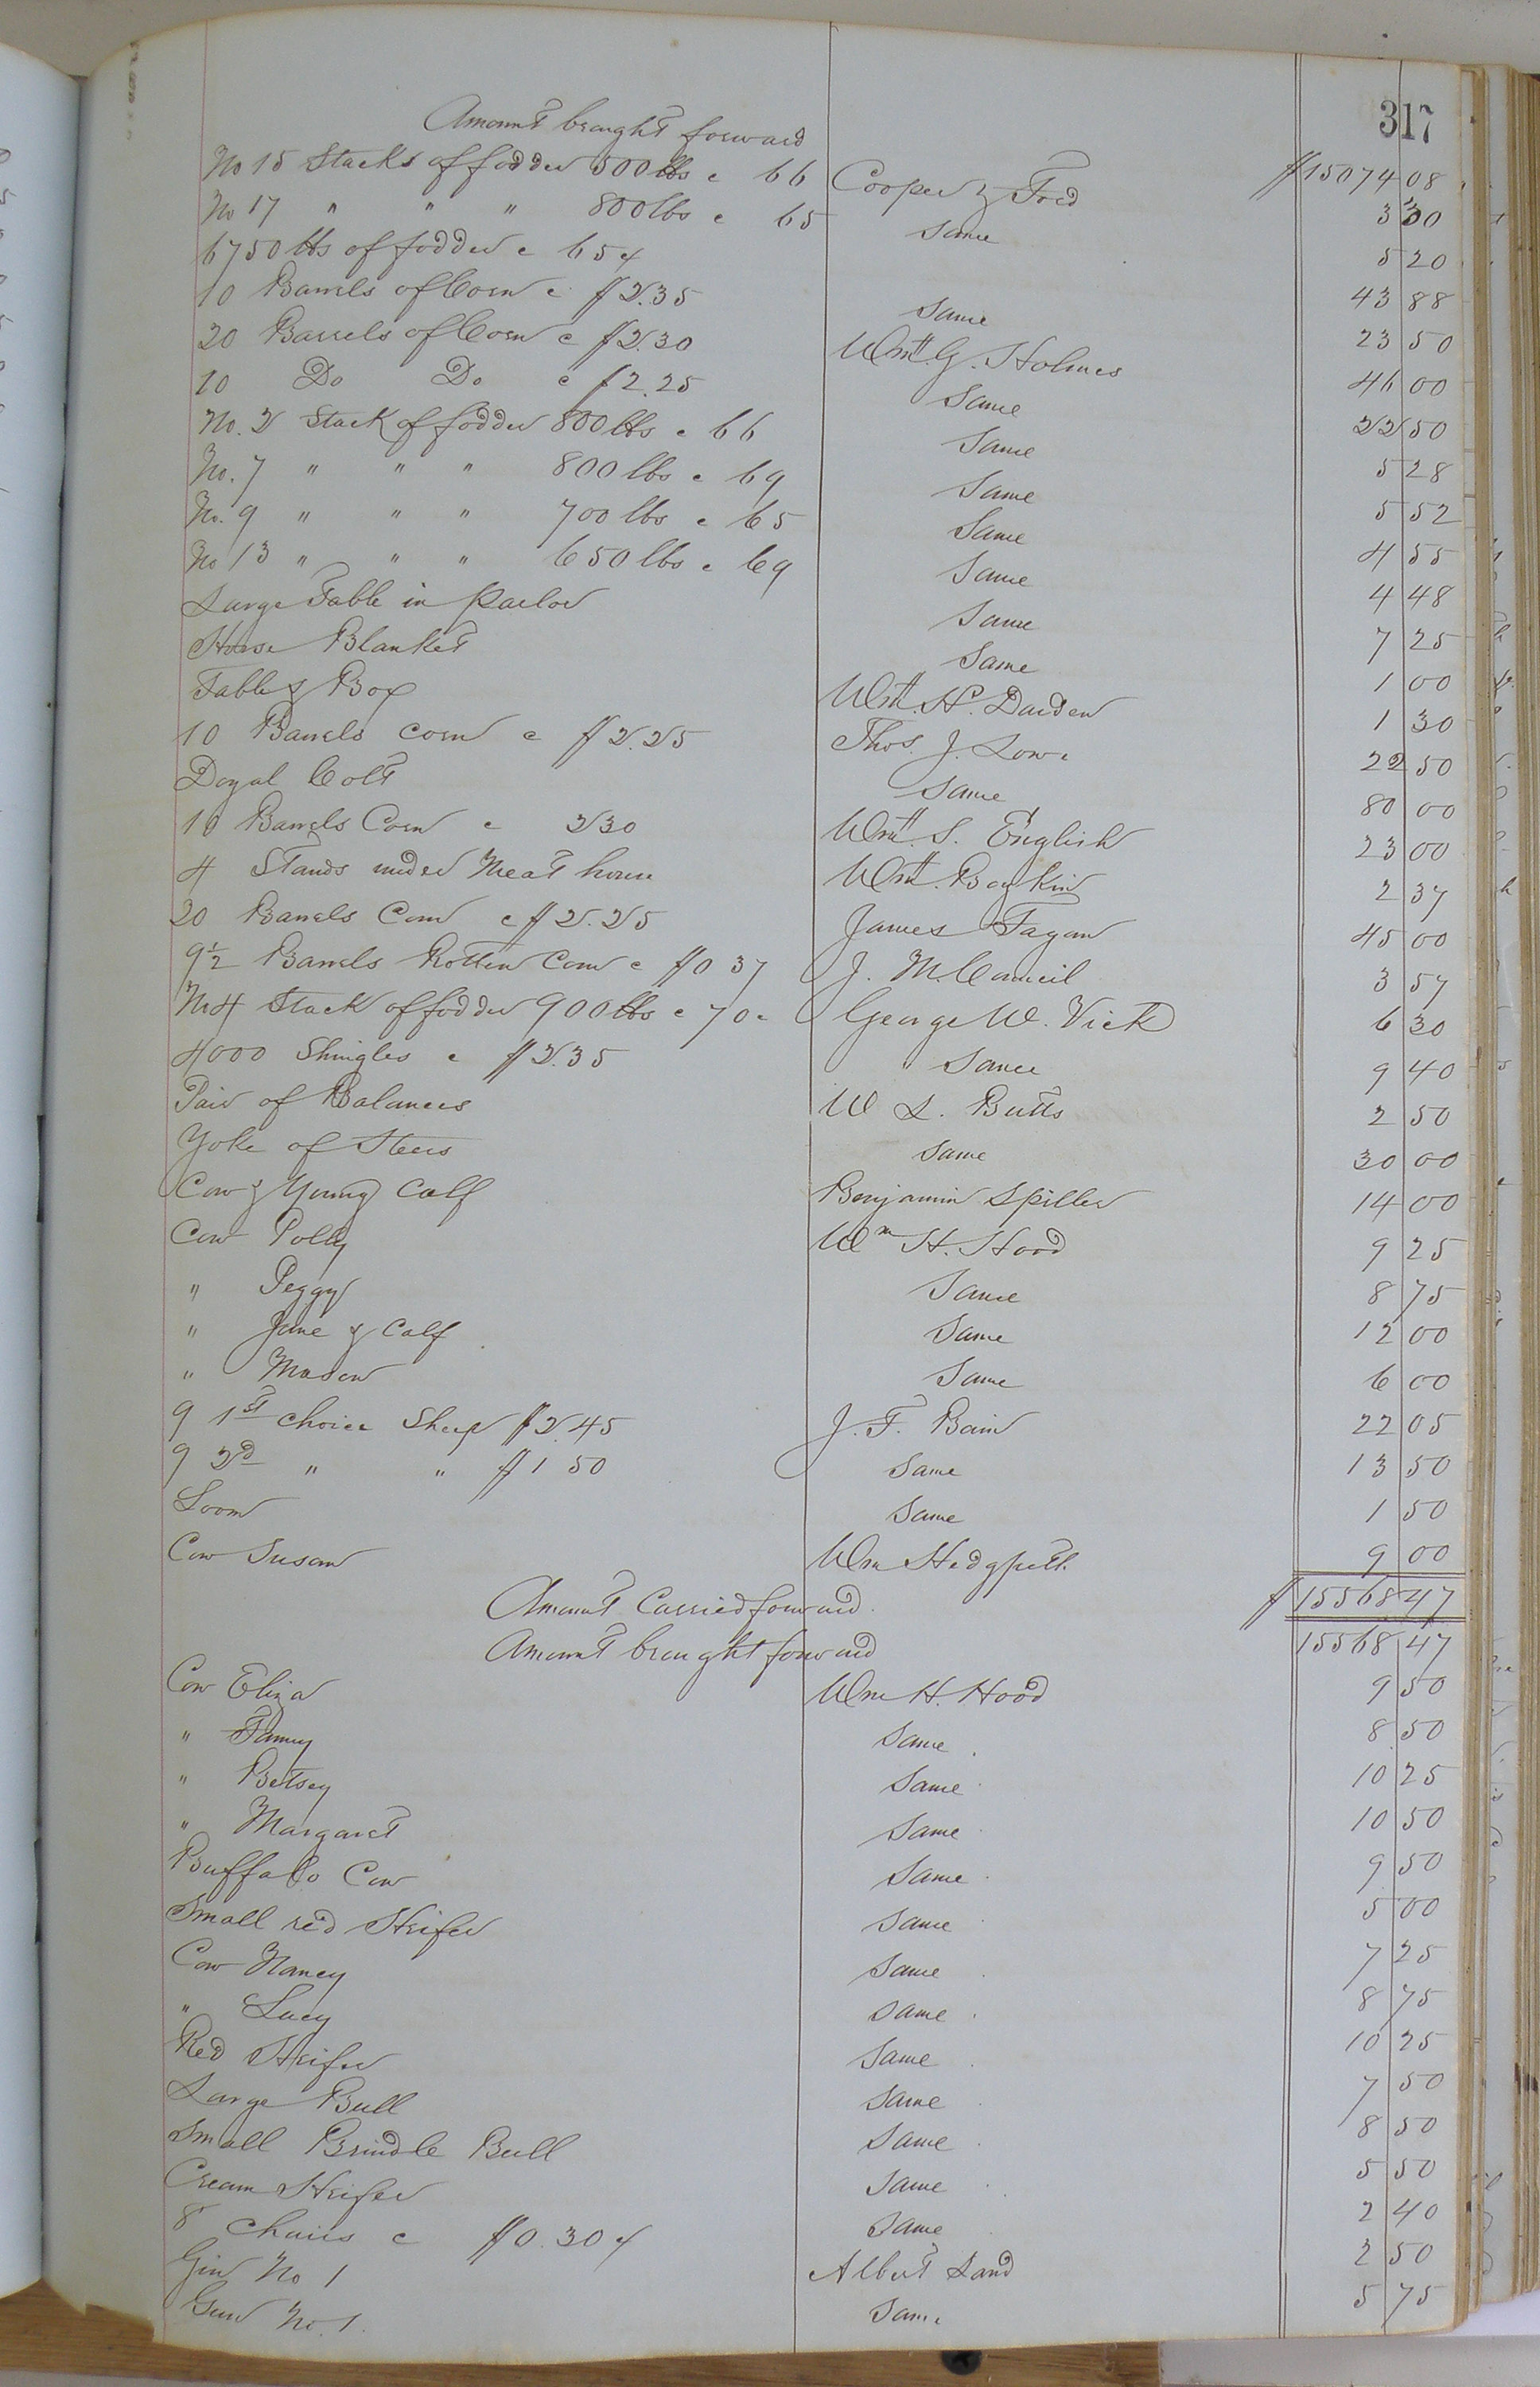 317
Amount brought forward $15074 08
No 15 Stacks of fodder 500 lbs c 66 Cooper & Ford 3 30
No 17 " " " 800 lbs c 65 Same 5 20
6750 lbs of fodder c 65 c Same 43 88
10 Barrels of Corn c $2.35 Wm. G. Holmes 23 50
20 Barrels of Corn c $2.30 Same 46 00
10 Do Do c $2.25 Same 22 50
No. 2 Stack of fodder 800 lbs c 66 Same 5 28
No. 7 " " " 800 lbs c 69 Same 5 52
No. 9 " " " 700 lbs c 65 Same 4 55
No 13 " " " 650 lbs c 69 Same 4 48
Large Table in Parlor Same 7 25
Horse Blanket Wm. H. Darden 1 00
Table & Box Thos. J. Lowe 1 30
10 Barrels corn c $2.25 Same 22 50
Colt 80 00
10 Barrels Corn c 230 Wm. S. English 23 00
4 Stands under Meat house Wm. Boykin 2 37
20 Barrels Corn c $2.25 James Fagan 45 00
9½ Barrels Rotten Corn c $0 37 J. M. Council 3 57
No 4 Stack of fodder 900 lbs c 70 c George W. Vick 6 30
4000 Shingles c $2.35 Same 9 40
Pair of Balances W L. Butts 2 50
Yoke of Steers Same 30 00
Cow & Young Calf Benjamin Spiller 14 00
Cow Polly Wm H. Hood 9 25
" Peggy Same 8 75
" Jane & Calf Same 12 00
" Same 6 00
9 1st choice Sheep $2.45 J. F. Bain 22 05
9 2d " " $1 50 Same 13 50
Loom Same 1 50
Cow Susan Wm Hedgpeth 9 00
Amount Carried forward $15568 47
Amount brought forward 15568 47
Cow Eliza Wm H. Hood 9 50
" Fanny Same 8 50
" Betsey Same 10 25
" Margaret Same 10 50
Buffalo Cow Same 9 50
Small red Heifer Same 5 00
Cow Nancy Same 7 25
" Lucy Same 8 75
Red Heifer Same 10 25
Large Bull Same 7 50
Small Brindle Bull Same 8 50
Cream Heifer Same 5 50
8 Chairs c $0.30 c Same 2 40
Gin No 1 Albert Land 2 50
Gun No. 1. Same 5 75